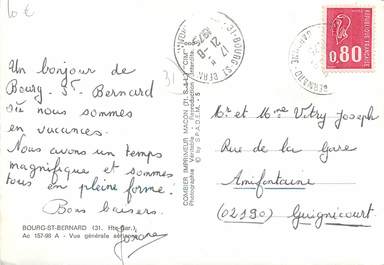 10 €
31
Un bonjour de
Bourg-St-Bernard
où nous sommes
en vacances.
Nous avons un temps
magnifique et sommes
tous en pleine forme!
Bons baisers.
BOURG-ST-BERNARD (31. Hte-Gar.)
Ac 157-96 A - Vue générale aérienne
COMBIER IMPRIMEUR MACON (71. S.-&-L.) "CIM"
Photographie Véritable - Reproduction Interdite
© by S.P.A.D.E.M. - 5
31-BOURG ST BERNARD
17 H
21 -8
1975
0,80
Mr et Mme Vitry Joseph
Rue de la Gare
Amifontaine
(02190) Guignicourt.